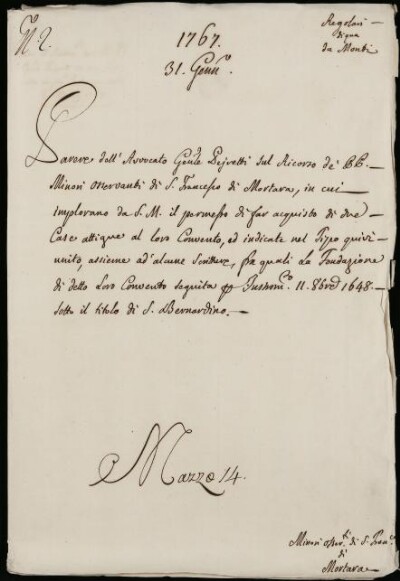 N. 2.
Regolari
di quà
da Monti
1767.
31. Genn.º
Parere dell' Avvocato Gen.le Pejretti sul Ricorso de' PP.
Minori osservanti di S. Francesco di Mortara, in cui
implorano da S. M. il permesso di far acquisto di due
Case attigue al loro Convento, ed indicate nel Tipo quivi
unito, assieme ad' alcune Scritture, fra quali la Fondazione
di detto Loro Convento seguita 11. 8bre 1648.
sotto il titolo di S. Bernardino.
Mazzo 14.
Minori osser.ti di S. Fran.º
di
Mortara